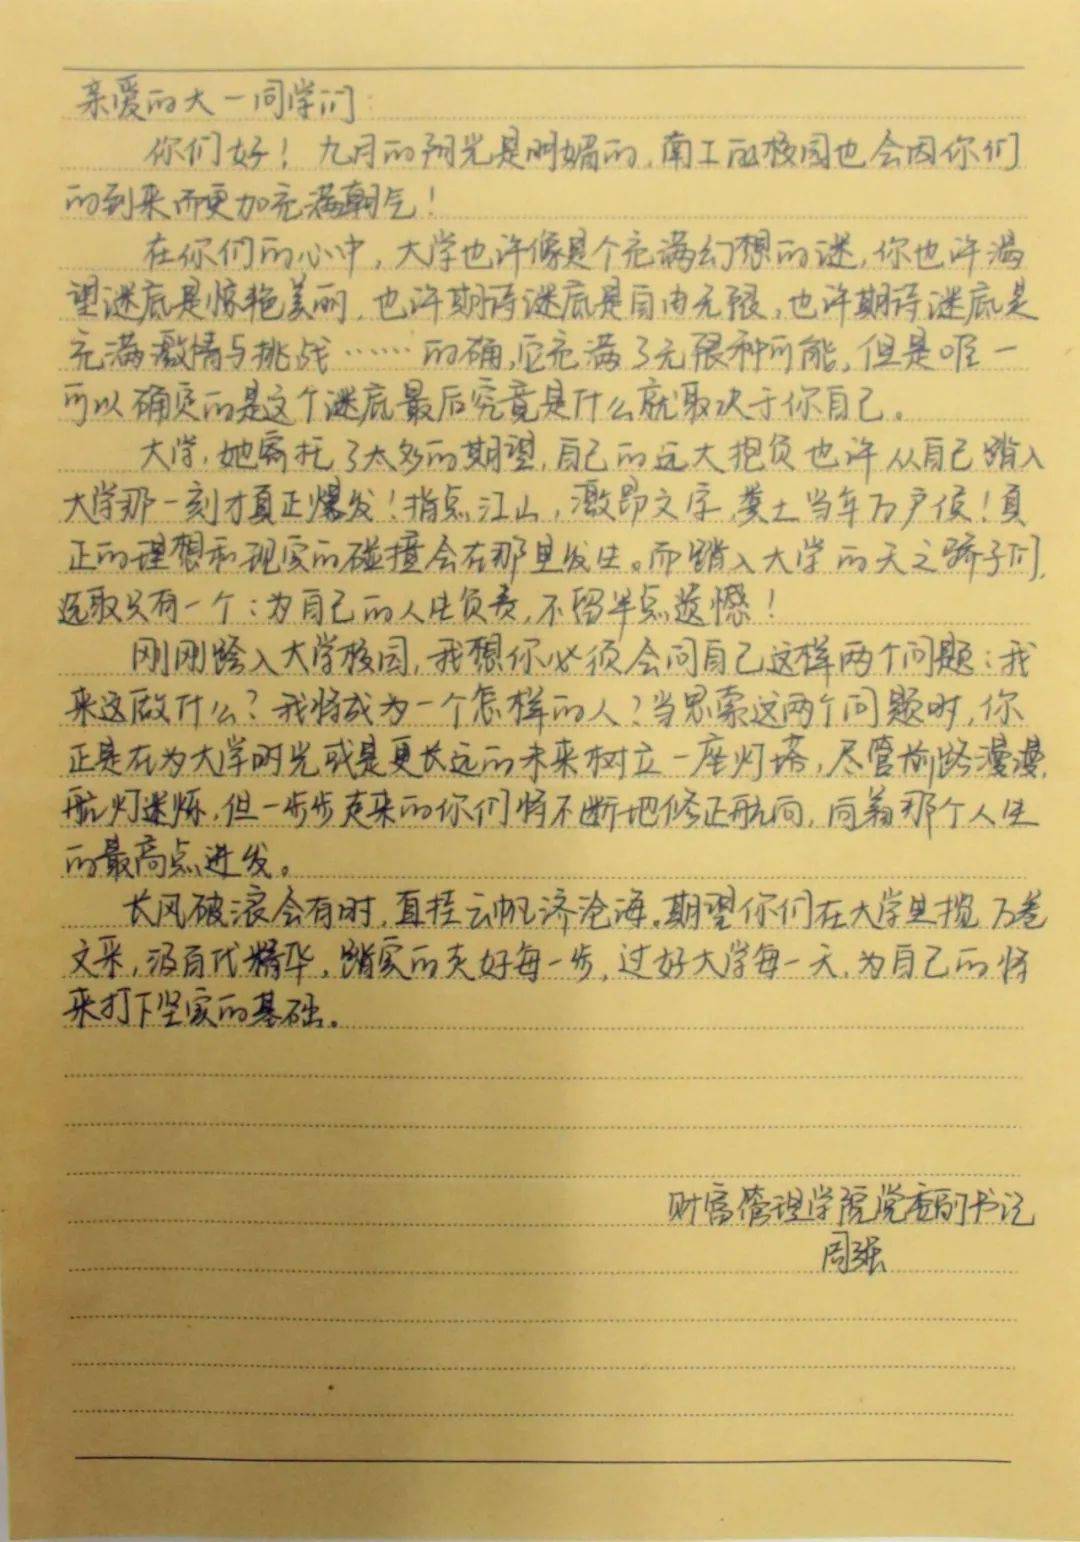 亲爱的大一同学们:
你们好！九月的阳光是明媚的,南工的校园也会因你们
的到来而更加充满朝气！
在你们的心中,大学也许像是个充满幻想的谜,你也许渴
望谜底是惊艳美丽,也许期待谜底是自由无限,也许期待谜底是
充满激情与挑战……的确,它充满了无限种可能,但是唯一
可以确定的是这个谜底最后究竟是什么就取决于你自己。
大学,她寄托了太多的期望,自己的远大抱负也许从自己踏入
大学那一刻才真正爆发！指点江山,激昂文字,粪土当年万户侯！真
正的理想和现实的碰撞会在那里发生。而踏入大学的天之骄子们,
选取只有一个:为自己的人生负责,不留半点遗憾！
刚刚踏入大学校园,我想你必须会问自己这样两个问题:我
来这做什么?我将成为一个怎样的人?当思索这两个问题时,你
正是在为大学时光或是更长远的未来树立一座灯塔,尽管前路漫漫,
航灯迷烁,但一步步走来的你们将不断地修正航向,向着那个人生
的最高点进发。
长风破浪会有时,直挂云帆济沧海。期望你们在大学里揽万卷
文采,汲百代精华,踏实的走好每一步,过好大学每一天,为自己的将
来打下坚实的基础。
财富管理学院党委副书记
周强